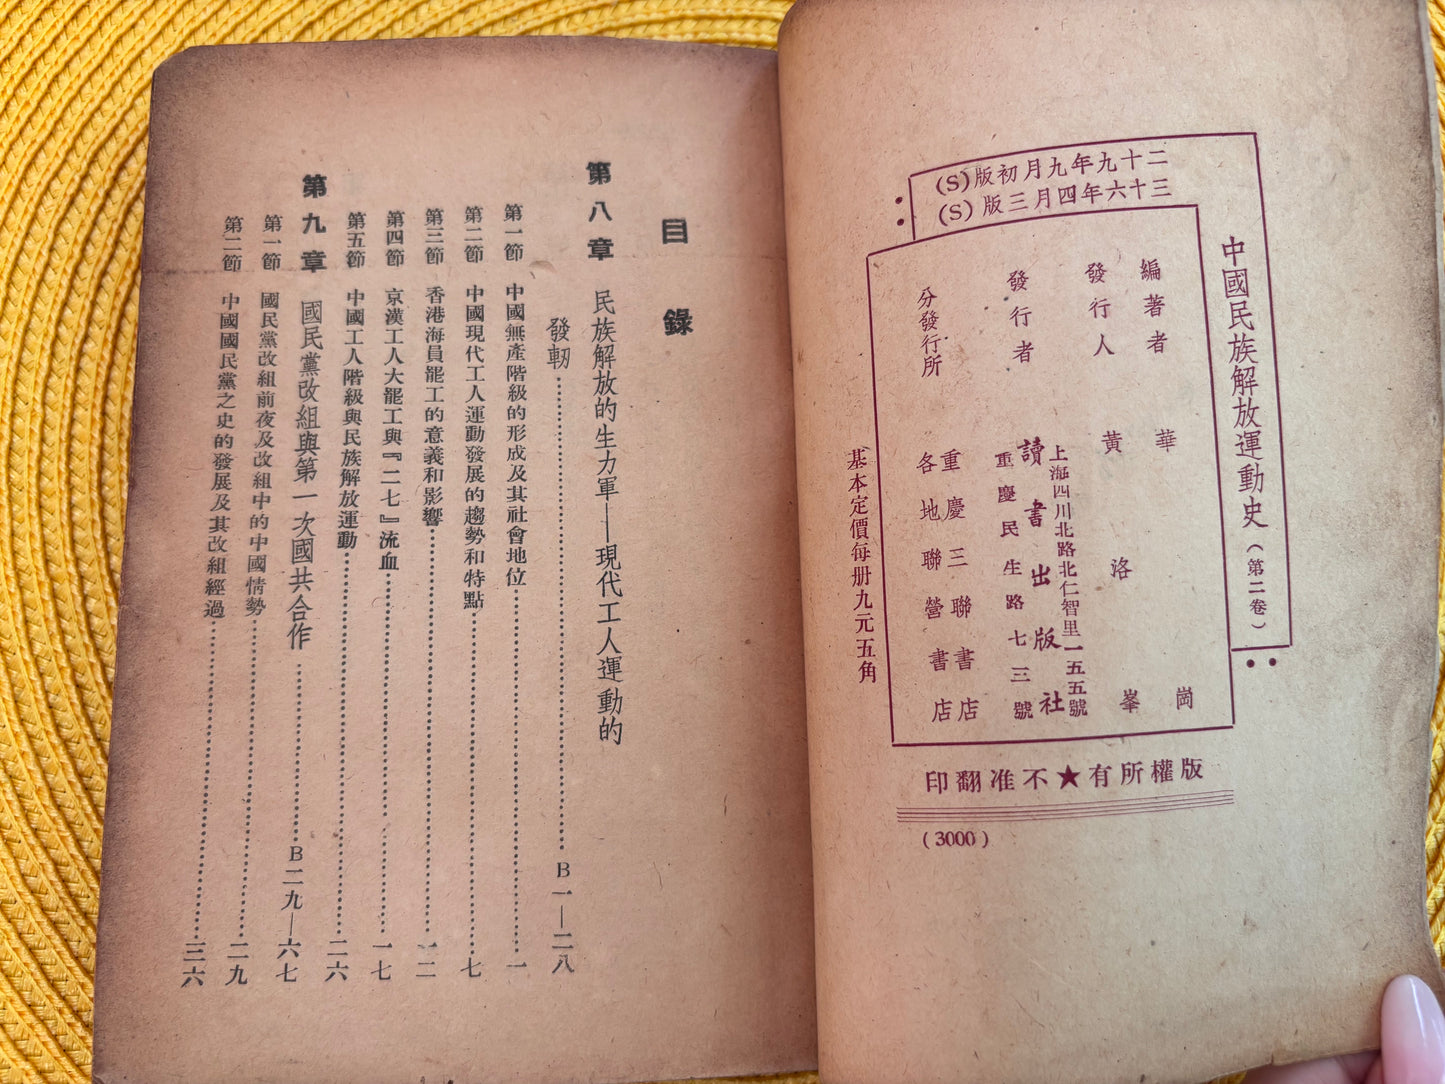 中國民族解放運動史（第二卷）
二十九年九月初版(S)
三十六年四月三版(S)
編著者 華崗
發行人 黃洛峯
發行者 讀書出版社
上海四川北路北仁智里一五五號
重慶民生路七三號
分發行所 重慶三聯書店
各地聯營書店
基本定價每册九元五角
版權所有★不准翻印
(3000)
目錄
第八章 民族解放的生力軍——現代工人運動的
發軔……B一—二八
第一節 中國無產階級的形成及其社會地位……一
第二節 中國現代工人運動發展的趨勢和特點……七
第三節 香港海員罷工的意義和影響……一二
第四節 京漢工人大罷工與『二七』流血……一七
第五節 中國工人階級與民族解放運動……二六
第九章 國民黨改組與第一次國共合作……B二九—六七
第一節 國民黨改組前夜及改組中的中國情勢……二九
第二節 中國國民黨之史的發展及其改組經過……三六